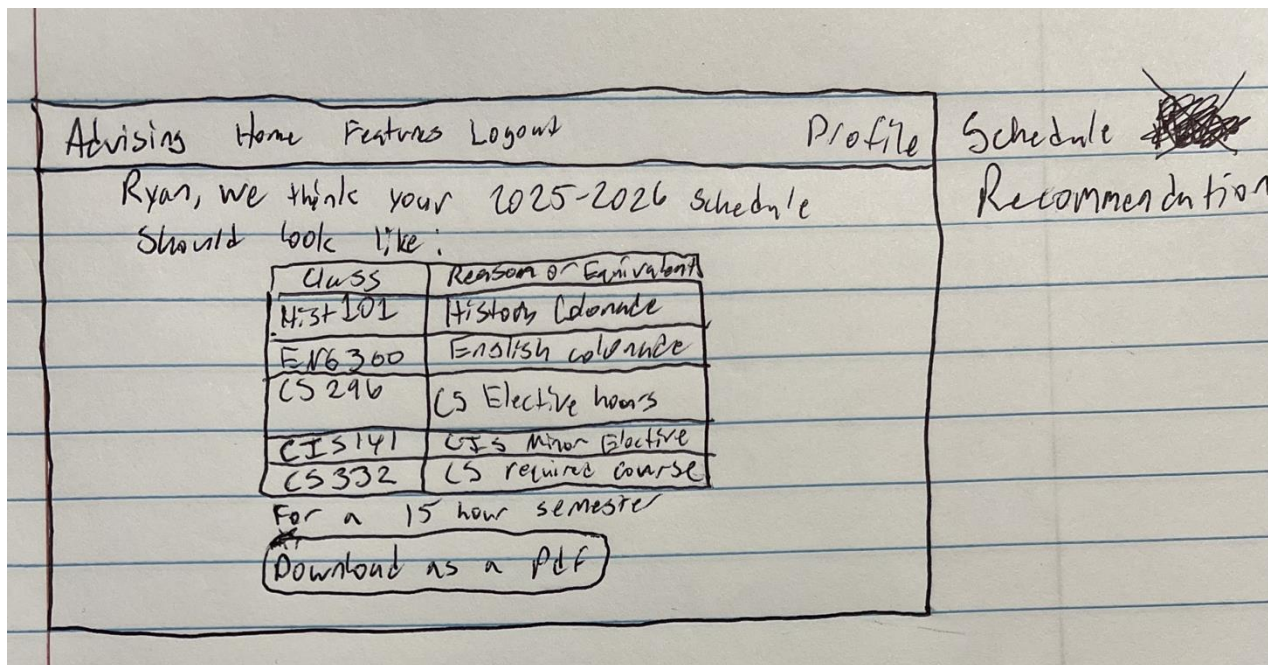 Advising Home Features Logout Profile
Schedule
Recommendation
Ryan, we think your 2025-2026 schedule
Should look like:
Class Reason or Equivalent
Hist 101 History Colonade
ENG 300 English colonade
CS 296 CS Elective hours
CIS 141 CIS Minor Elective
CS 332 CS required course
For a 15 hour semester
Download as a Pdf